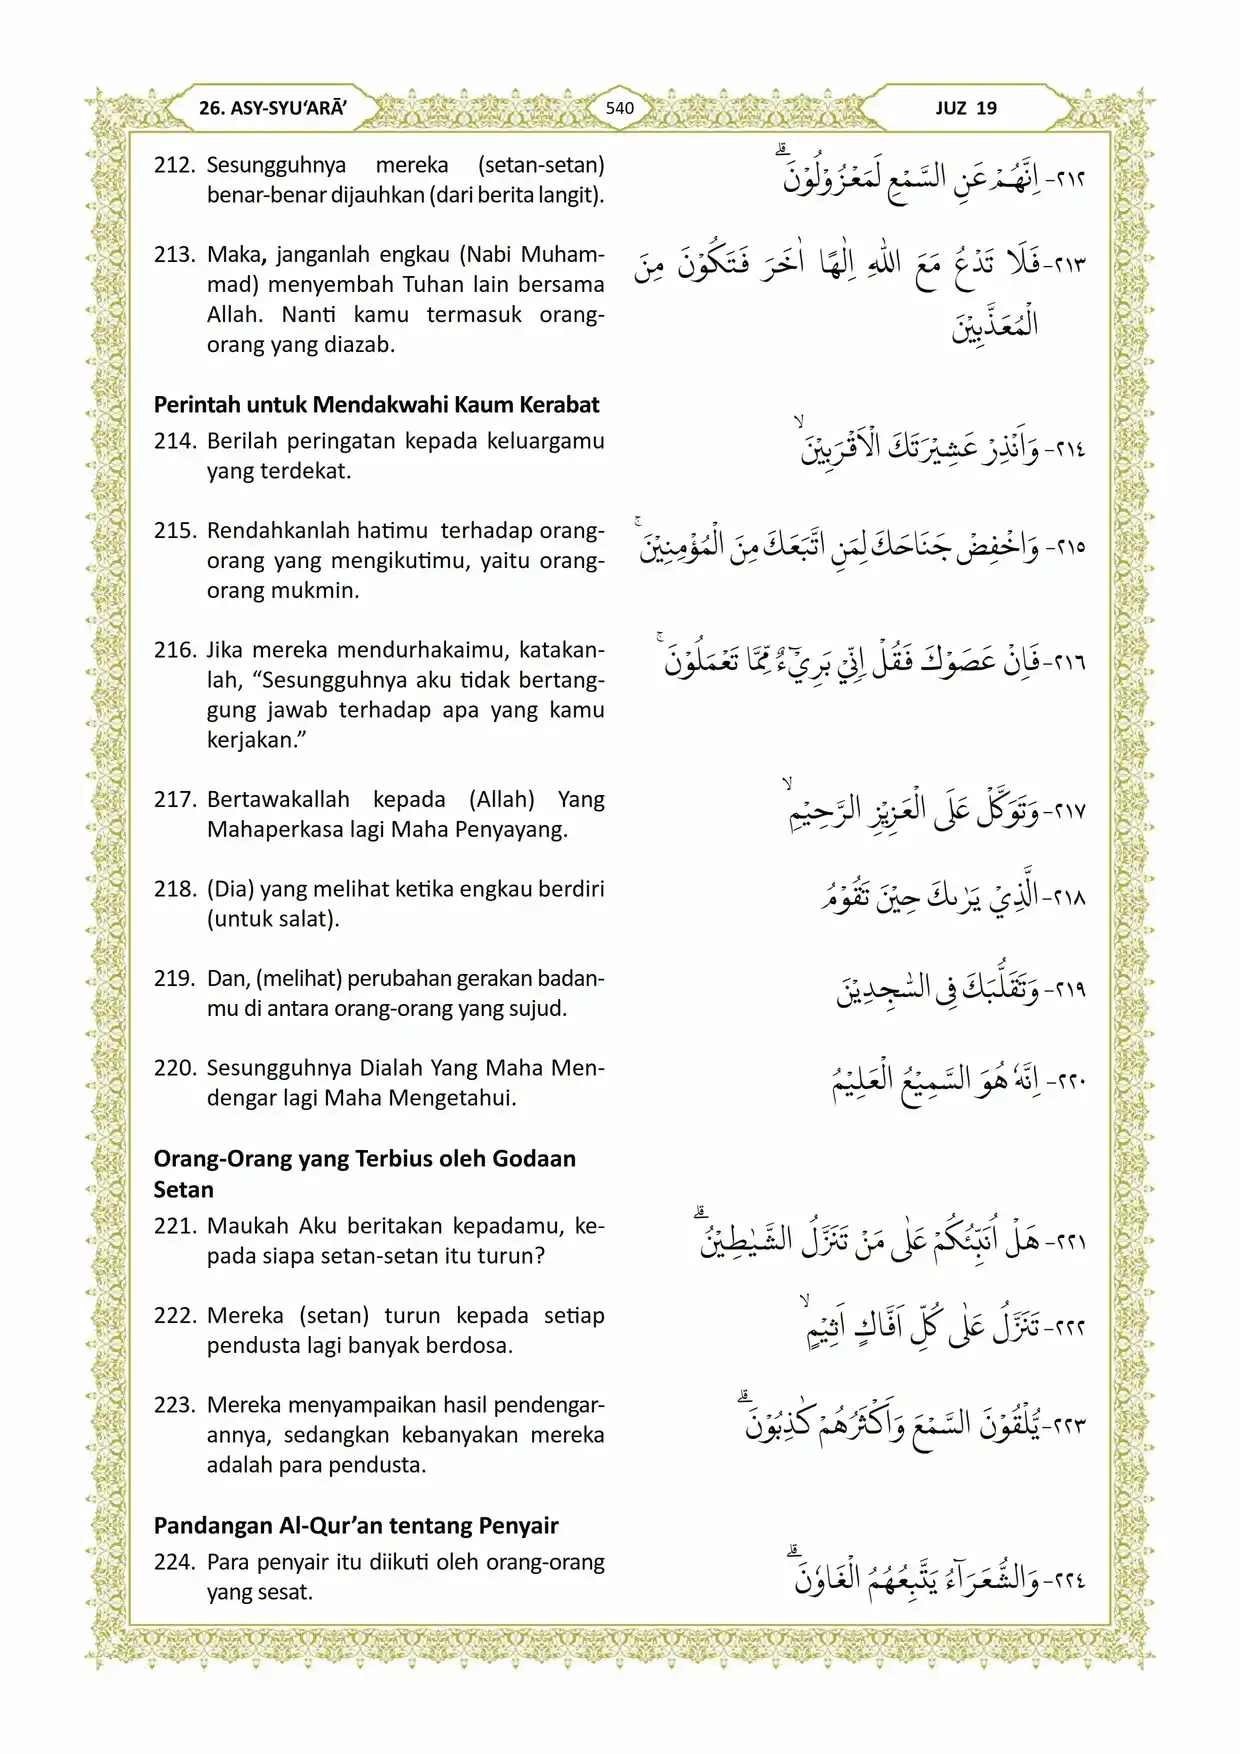 26. ASY-SYU‘ARĀ’
540
JUZ 19
212. Sesungguhnya mereka (setan-setan)
benar-benar dijauhkan (dari berita langit).
٢١٢- اِنَّهُمْ عَنِ السَّمْعِ لَمَعْزُوْلُوْنَ ۗ
213. Maka, janganlah engkau (Nabi Muham-
mad) menyembah Tuhan lain bersama
Allah. Nanti kamu termasuk orang-
orang yang diazab.
٢١٣- فَلَا تَدْعُ مَعَ اللّٰهِ اِلٰهًا اٰخَرَ فَتَكُوْنَ مِنَ
الْمُعَذَّبِيْنَ
Perintah untuk Mendakwahi Kaum Kerabat
214. Berilah peringatan kepada keluargamu
yang terdekat.
٢١٤- وَاَنْذِرْ عَشِيْرَتَكَ الْاَقْرَبِيْنَ ۙ
215. Rendahkanlah hatimu terhadap orang-
orang yang mengikutimu, yaitu orang-
orang mukmin.
٢١٥- وَاخْفِضْ جَنَاحَكَ لِمَنِ اتَّبَعَكَ مِنَ الْمُؤْمِنِيْنَ ۚ
216. Jika mereka mendurhakaimu, katakan-
lah, “Sesungguhnya aku tidak bertang-
gung jawab terhadap apa yang kamu
kerjakan.”
٢١٦- فَاِنْ عَصَوْكَ فَقُلْ اِنِّيْ بَرِيْۤءٌ مِّمَّا تَعْمَلُوْنَ ۚ
217. Bertawakallah kepada (Allah) Yang
Mahaperkasa lagi Maha Penyayang.
٢١٧- وَتَوَكَّلْ عَلَى الْعَزِيْزِ الرَّحِيْمِ ۙ
218. (Dia) yang melihat ketika engkau berdiri
(untuk salat).
٢١٨- الَّذِيْ يَرٰىكَ حِيْنَ تَقُوْمُ
219. Dan, (melihat) perubahan gerakan badan-
mu di antara orang-orang yang sujud.
٢١٩- وَتَقَلُّبَكَ فِى السّٰجِدِيْنَ
220. Sesungguhnya Dialah Yang Maha Men-
dengar lagi Maha Mengetahui.
٢٢٠- اِنَّهٗ هُوَ السَّمِيْعُ الْعَلِيْمُ
Orang-Orang yang Terbius oleh Godaan
Setan
221. Maukah Aku beritakan kepadamu, ke-
pada siapa setan-setan itu turun?
٢٢١- هَلْ اُنَبِّئُكُمْ عَلٰى مَنْ تَنَزَّلُ الشَّيٰطِيْنُ ۗ
222. Mereka (setan) turun kepada setiap
pendusta lagi banyak berdosa.
٢٢٢- تَنَزَّلُ عَلٰى كُلِّ اَفَّاكٍ اَثِيْمٍ ۙ
223. Mereka menyampaikan hasil pendengar-
annya, sedangkan kebanyakan mereka
adalah para pendusta.
٢٢٣- يُّلْقُوْنَ السَّمْعَ وَاَكْثَرُهُمْ كٰذِبُوْنَ ۗ
Pandangan Al-Qur’an tentang Penyair
224. Para penyair itu diikuti oleh orang-orang
yang sesat.
٢٢٤- وَالشُّعَرَاۤءُ يَتَّبِعُهُمُ الْغَاوٗنَ ۗ